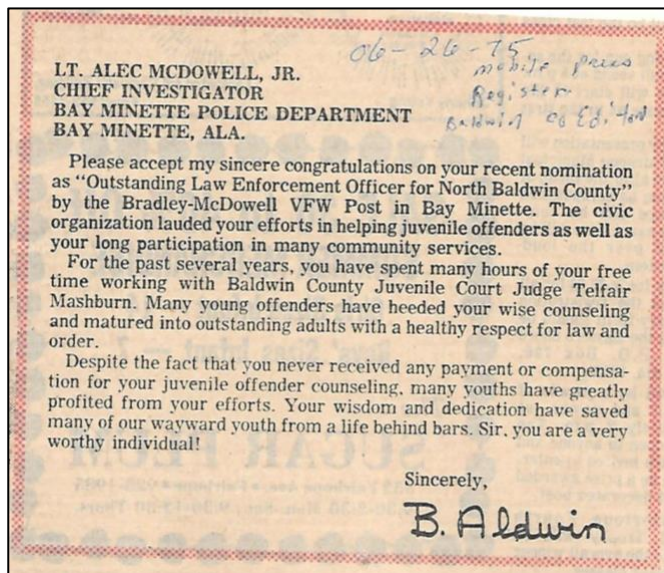 06-26-75
Mobile Press
Register
Baldwin Co Edition
LT. ALEC MCDOWELL, JR.
CHIEF INVESTIGATOR
BAY MINETTE POLICE DEPARTMENT
BAY MINETTE, ALA.
Please accept my sincere congratulations on your recent nomination
as "Outstanding Law Enforcement Officer for North Baldwin County"
by the Bradley-McDowell VFW Post in Bay Minette. The civic
organization lauded your efforts in helping juvenile offenders as well as
your long participation in many community services.
For the past several years, you have spent many hours of your free
time working with Baldwin County Juvenile Court Judge Telfair
Mashburn. Many young offenders have heeded your wise counseling
and matured into outstanding adults with a healthy respect for law and
order.
Despite the fact that you never received any payment or compensa-
tion for your juvenile offender counseling, many youths have greatly
profited from your efforts. Your wisdom and dedication have saved
many of our wayward youth from a life behind bars. Sir, you are a very
worthy individual!
Sincerely,
B. Aldwin